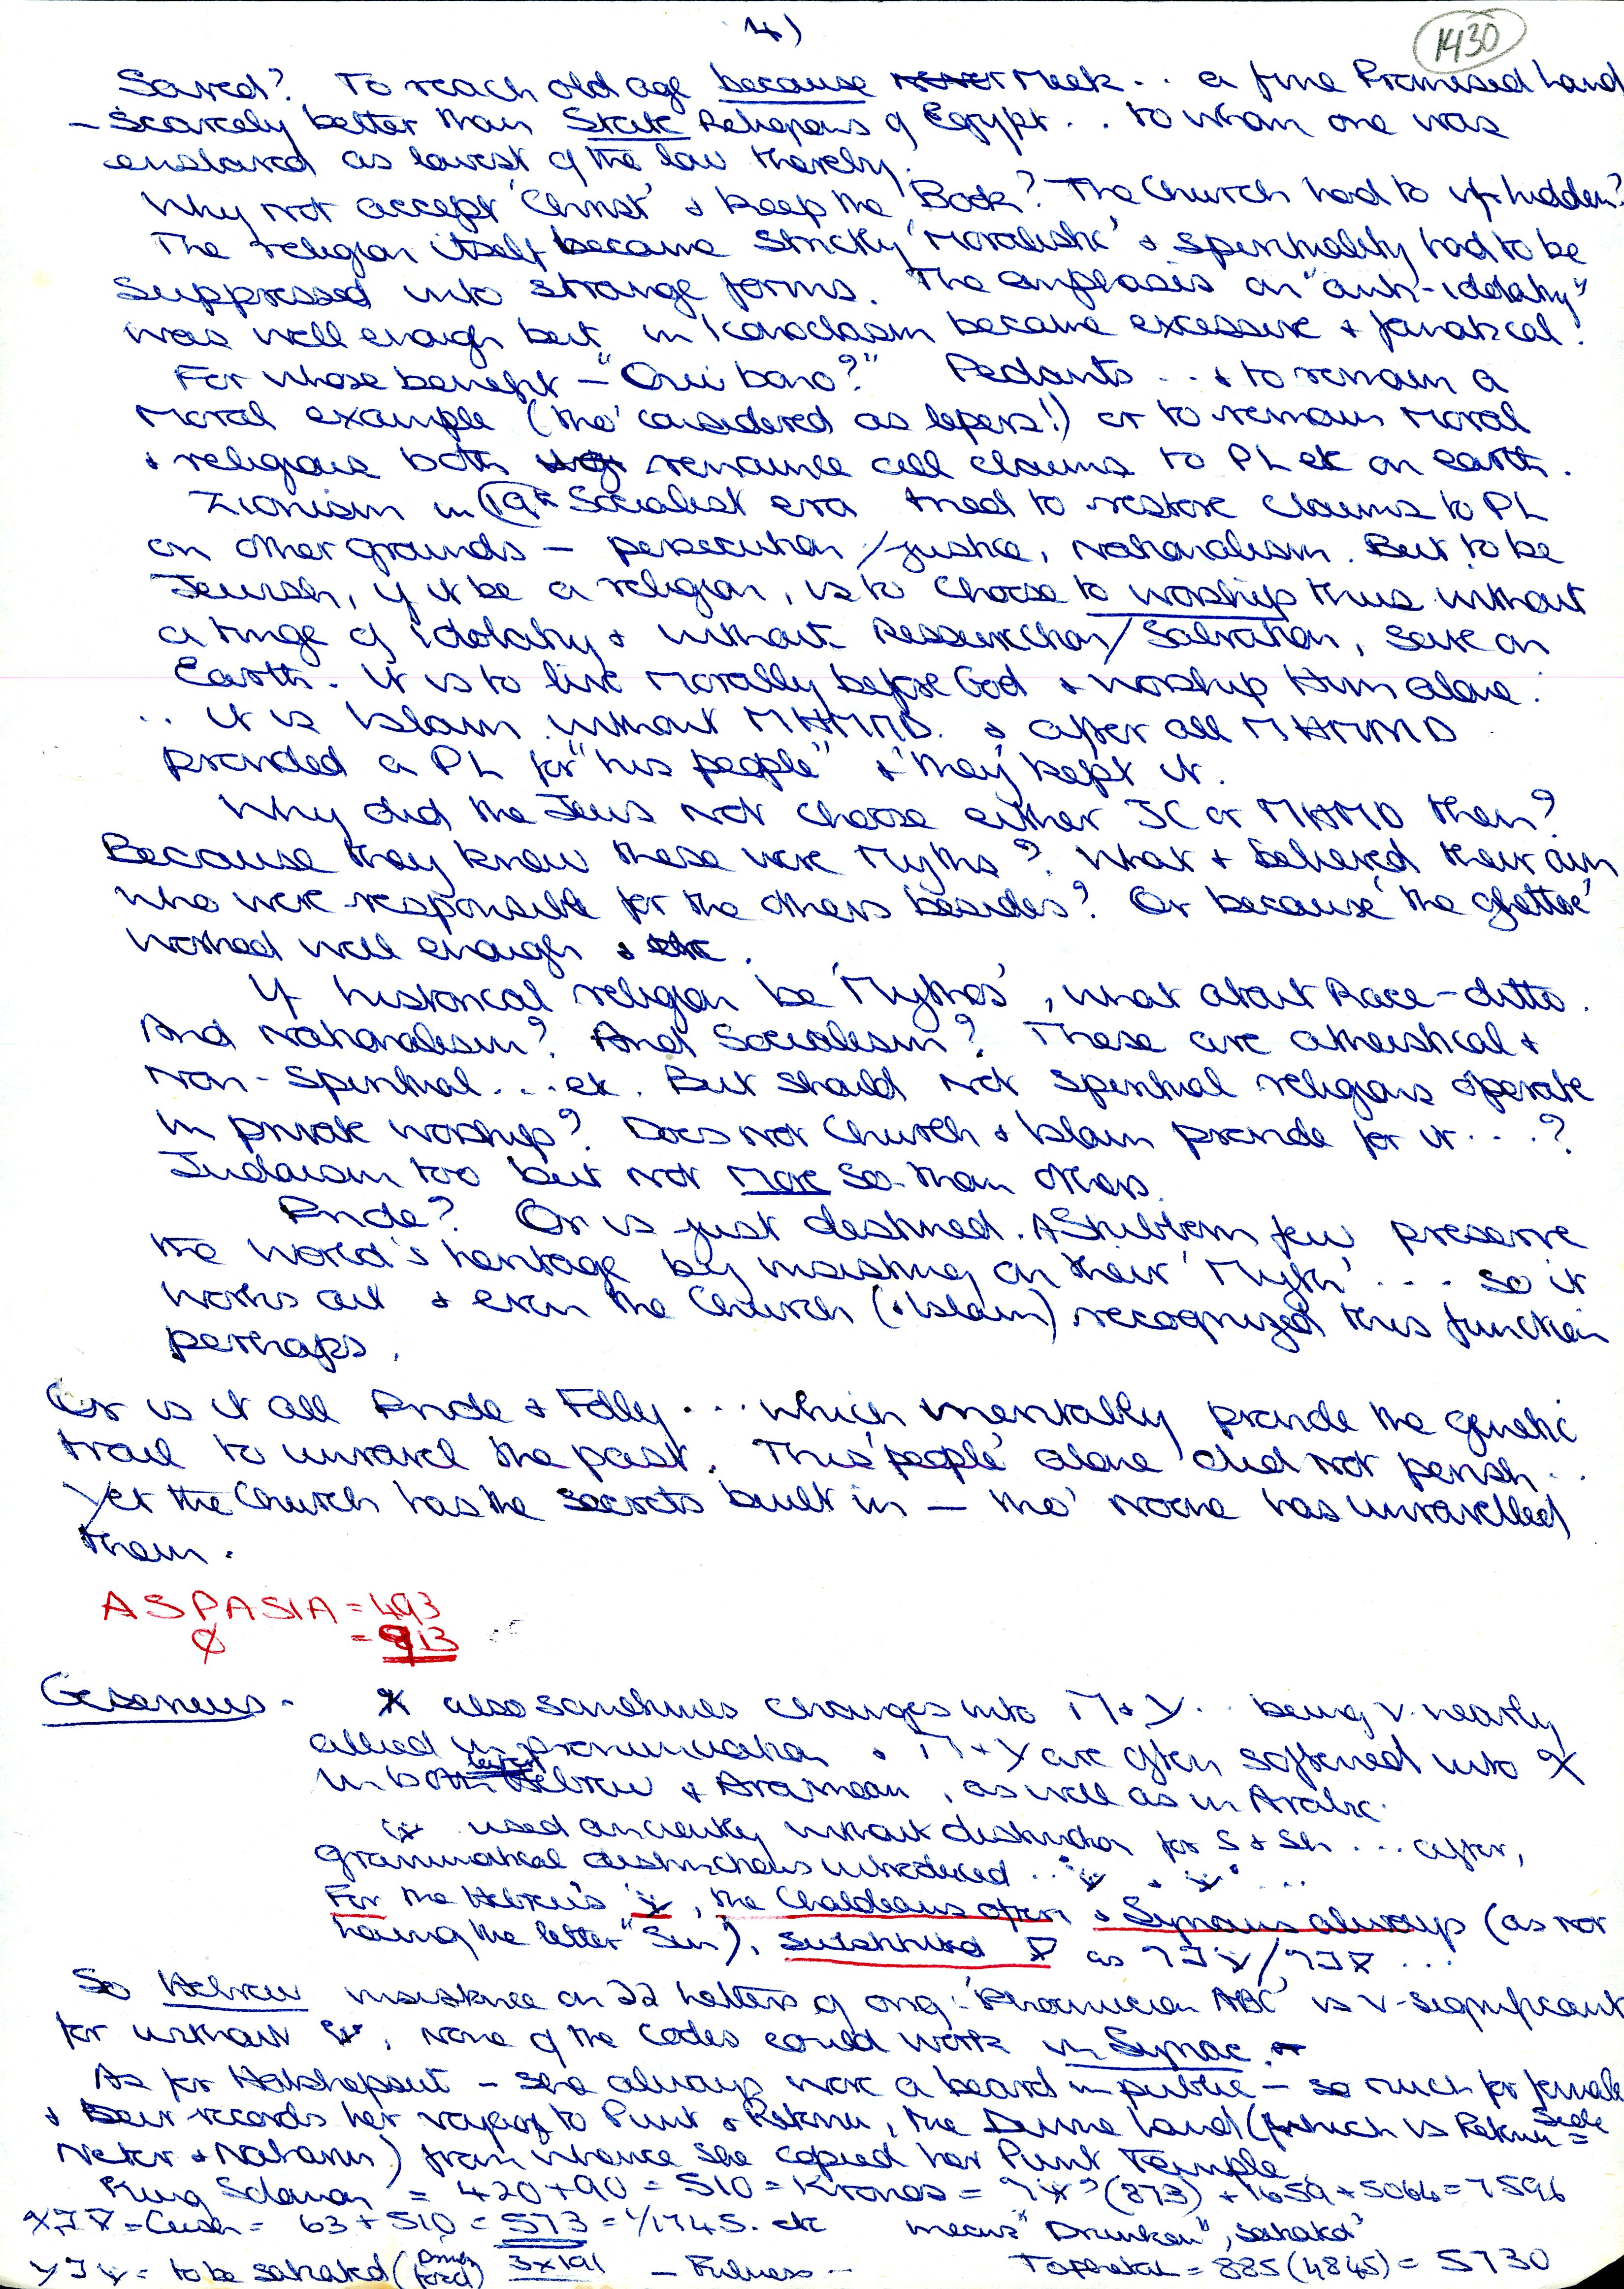 4)
1430
Saved? To reach old age because Meek .. a fine Promised Land
- Scarcely better than State Religions of Egypt .. to whom one was
enslaved as lowest of the law thereby.
Why not accept 'Christ' & keep the 'Book'? The Church had to hidden?
The religion itself became strictly 'Moralistic' & spirituality had to be
suppressed into strange forms. The emphasis on "anti-idolatry"
was well enough but in Iconoclasm became excessive & fanatical!
For whose benefit - "Cui bono?" Pedants ... & to remain a
Moral example (tho' considered as lepers!) or to remain Moral
& religious both renounce all claims to PL etc on earth.
Zionism in 19th Socialist era tried to restore claims to PL
on other grounds - persecution / justice, Nationalism. But to be
Jewish, if it be a religion, is to choose to worship thus without
a tinge of idolatry & without Ressurection / Salvation, save on
Earth. It is to live Morally before God & worship Him alone.
.. it is Islam without MHMMD. & after all MHMMD
provided a PL for "his people" & 'they' kept it.
Why did the Jews not choose either JC or MHMD then?
Because they knew these were Myths? What & believed their own
who were responsible for the others besides? Or because 'the ghetto'
worked well enough & etc.
If historical religion be 'Mythos', what about Race - ditto.
And Nationalism? And Socialism? These are atheistical &
Non-Spiritual ... etc. But should not spiritual religions operate
in private worship? Does not Church & Islam provide for it ....?
Judaism too but not more so than others.
Pride? Or is just destined. A Stubborn few preserve
the World's heritage by insisting on their 'Myth' .... so it
works out & even the Church (& Islam) recognized this function
perhaps.
Or is it all Pride & Folly ... which inevitably provide the genetic
trail to unravel the past. This 'people' alone did not perish ..
Yet the Church has the secrets built in - tho' none has unravelled
them.
ASPASIA = 493
Ø = 913
Gesenius - א also sometimes changes into ה & ע .. being v. nearly
allied in pronunciation & ה & ע are often softened into א
in both Hebrew & Aramean, as well as in Arabic.
ש used anciently without distinction for S & Sh ... after,
grammatical distinctions introduced .. שׁ & שׂ ...
For the Hebrew's שׂ, the Chaldeans often & Syrians always (as not
having the letter "Sin"), substituted ס as ...
So Hebrew insistence on 22 letters of orig. 'Phoenician ABC' is v. significant
for without ש, none of the codes could work in Syriac.
As for Hatshepsut - she always wore a beard in public - so much for female
& Beir records her voyage to Punt & Retenu, the Divine Land (which is Retenu =
Neter & Naharin) from whence she copied her Punt Temple
King Solomon = 420 + 90 = 510 = Kronos = (873) + 1659 + 5064 = 7596
= Cush = 63 + 510 = 573 = 1/1745. etc means "Drunken", satiated'
= to be satiated ( ) 3x191 - Fulness - = 885 (4845) = 5730